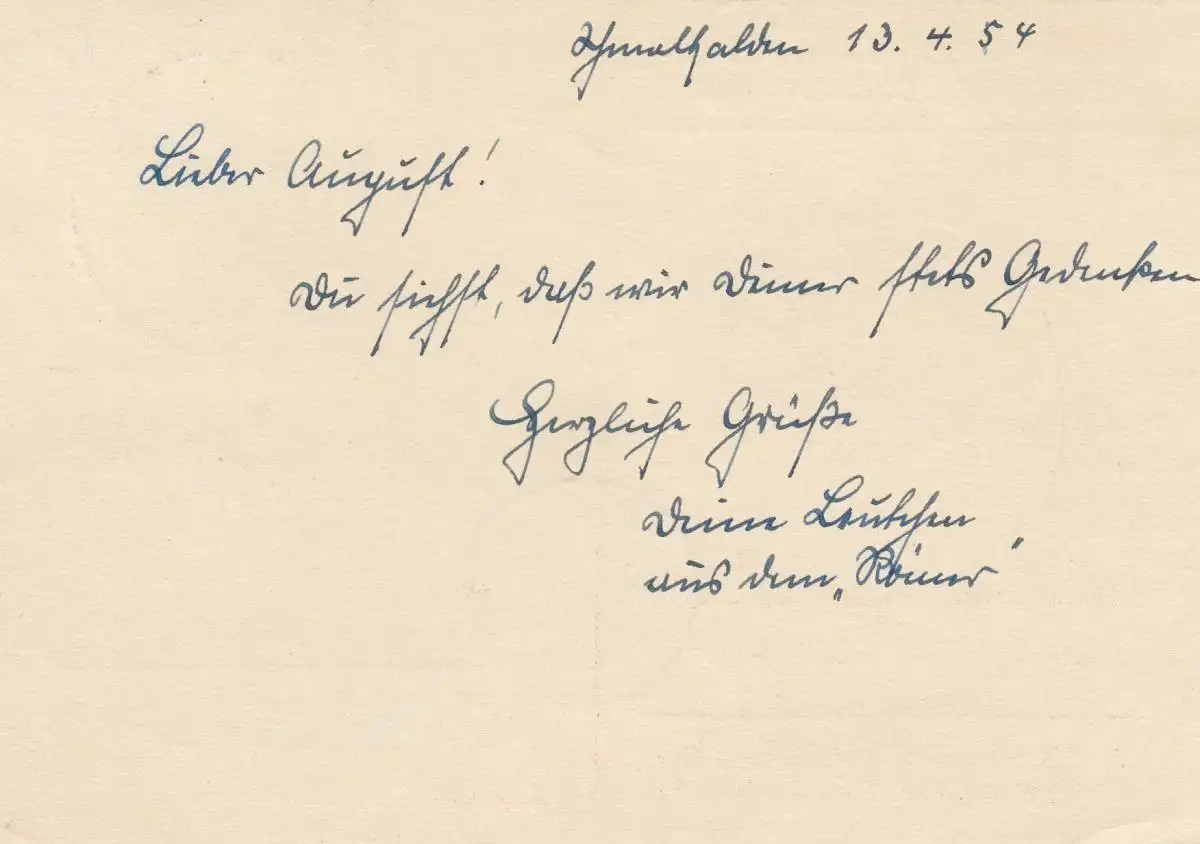 Schmalkalden 13. 4. 54
Lieber August!
Du siehst, daß wir Deiner stets Gedenken
Herzliche Grüße
Deine Leutchen
aus dem „Römer"